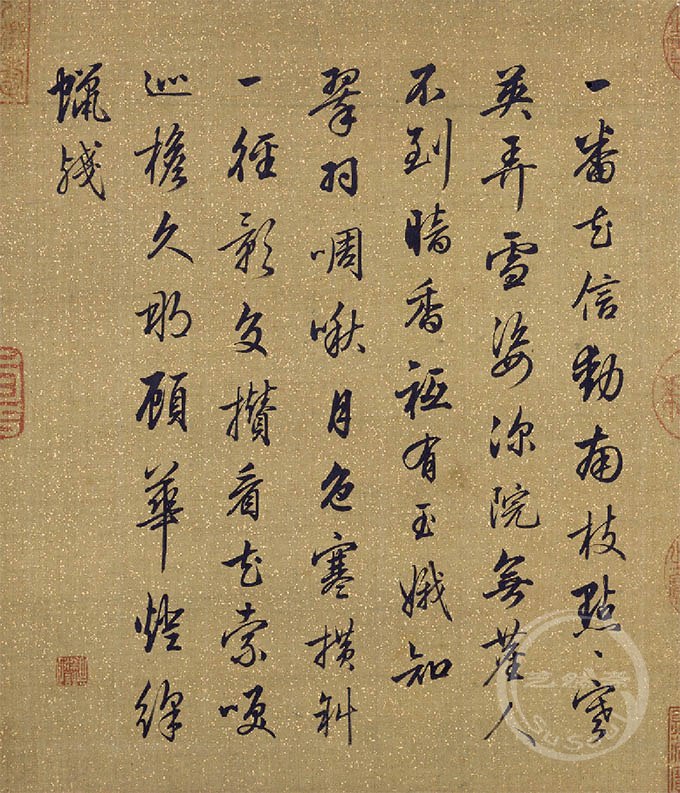 一番花信動南枝點點寒
英弄雪姿深院無塵人
不到暗香祗有玉娥知
翠羽啁啾月色寒橫斜
一徑影交攢看花索咲
巡檐久那顧華燈絳
蠟殘